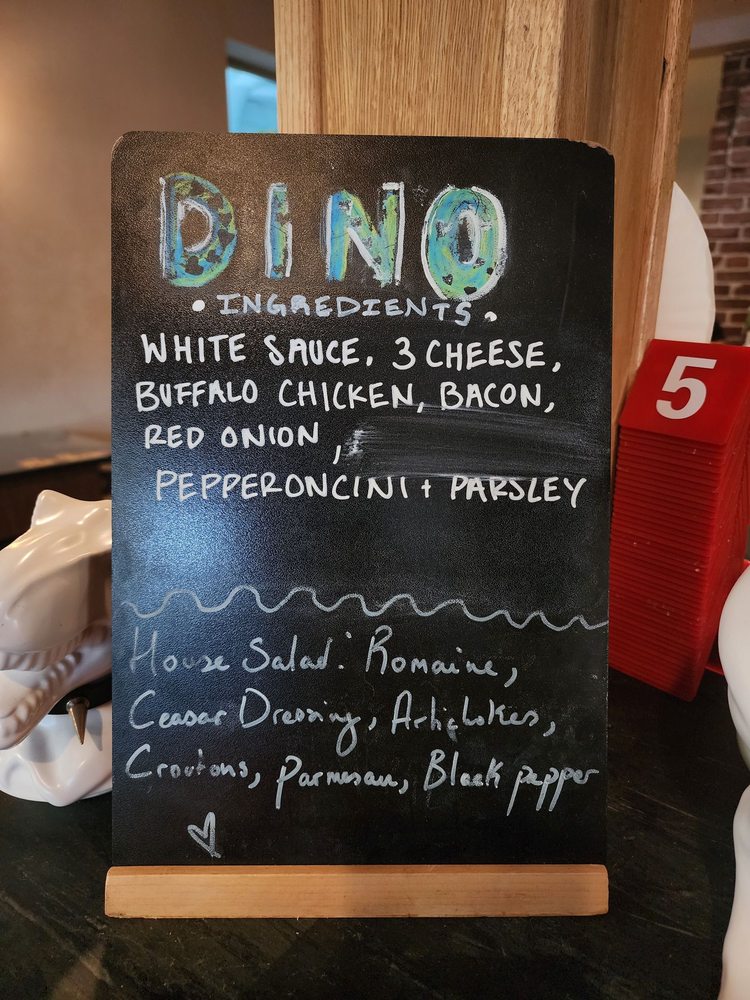 DINO
• INGREDIENTS •
WHITE SAUCE, 3 CHEESE,
BUFFALO CHICKEN, BACON,
RED ONION,
PEPPERONCINI + PARSLEY
House Salad: Romaine,
Ceasar Dressing, Artichokes,
Croutons, Parmesan, Black pepper
5